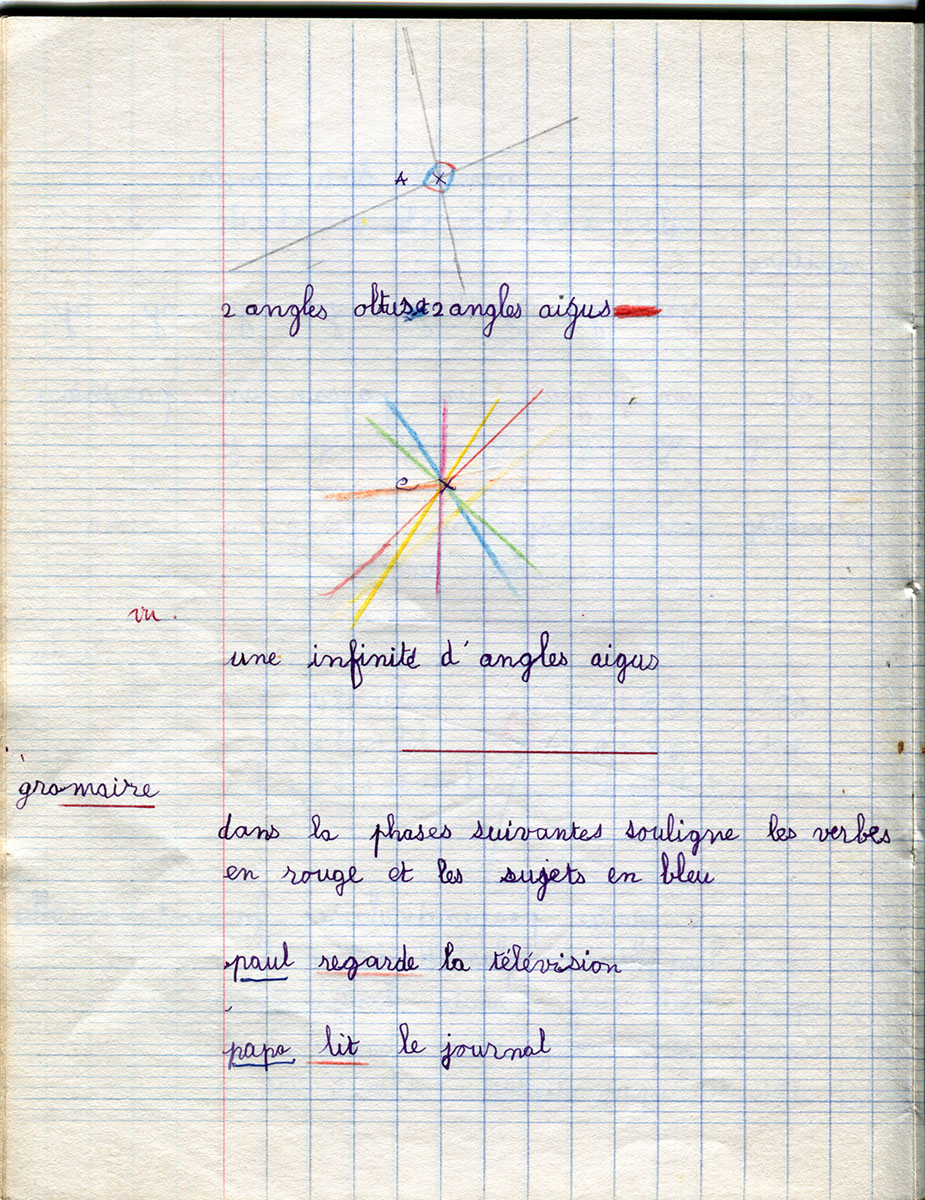 A
2 angles obtus et 2 angles aigus
C
vu.
une infinité d'angles aigus
gramaire
dans la phases suivantes souligne les verbes
en rouge et les sujets en bleu
paul regarde la télévision
papa lit le journal